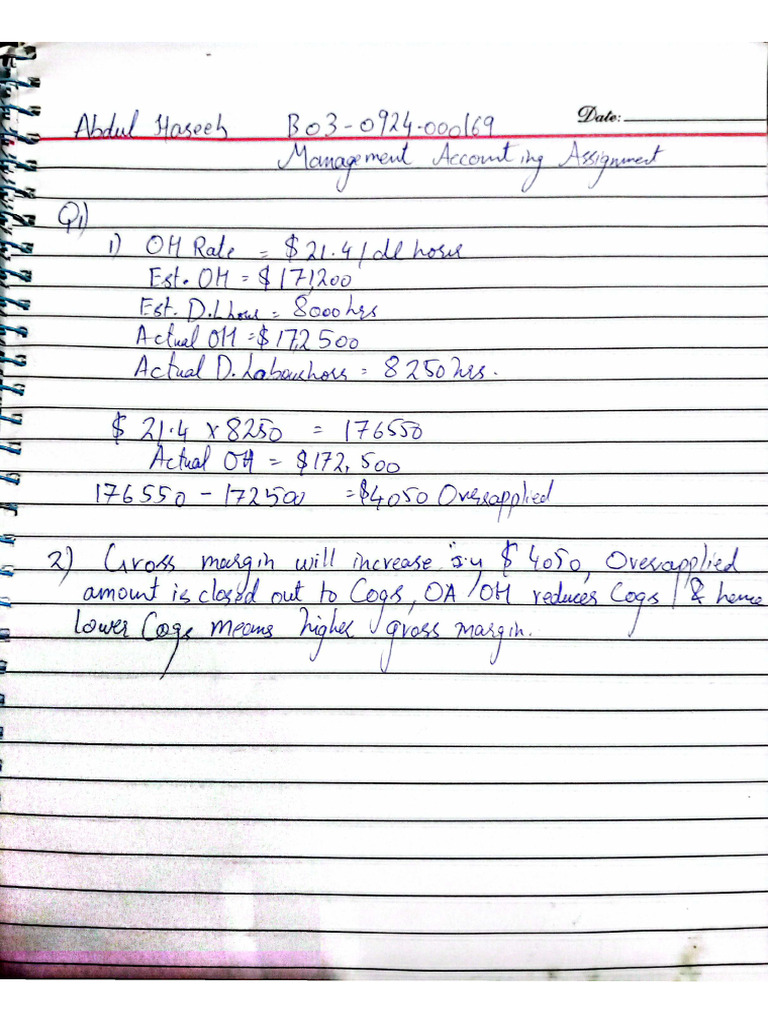 Abdul Haseeb B03-0924-000169 Date:
Management Accounting Assignment
Q1)
1) OH Rate = $21.4/dl hours
Est. OH = $171,200
Est. D.L hours = 8000 hrs
Actual OH = $172,500
Actual D. Labour hors = 8250 hrs.
$ 21.4 x 8250 = 176550
Actual OH = $172,500
176550 - 172500 = $4050 Overapplied
2) Gross margin will increase by $ 4050, Overapplied
amount is closed out to Cogs, OA/OH reduces Cogs & hence
lower Cogs means higher gross margin.